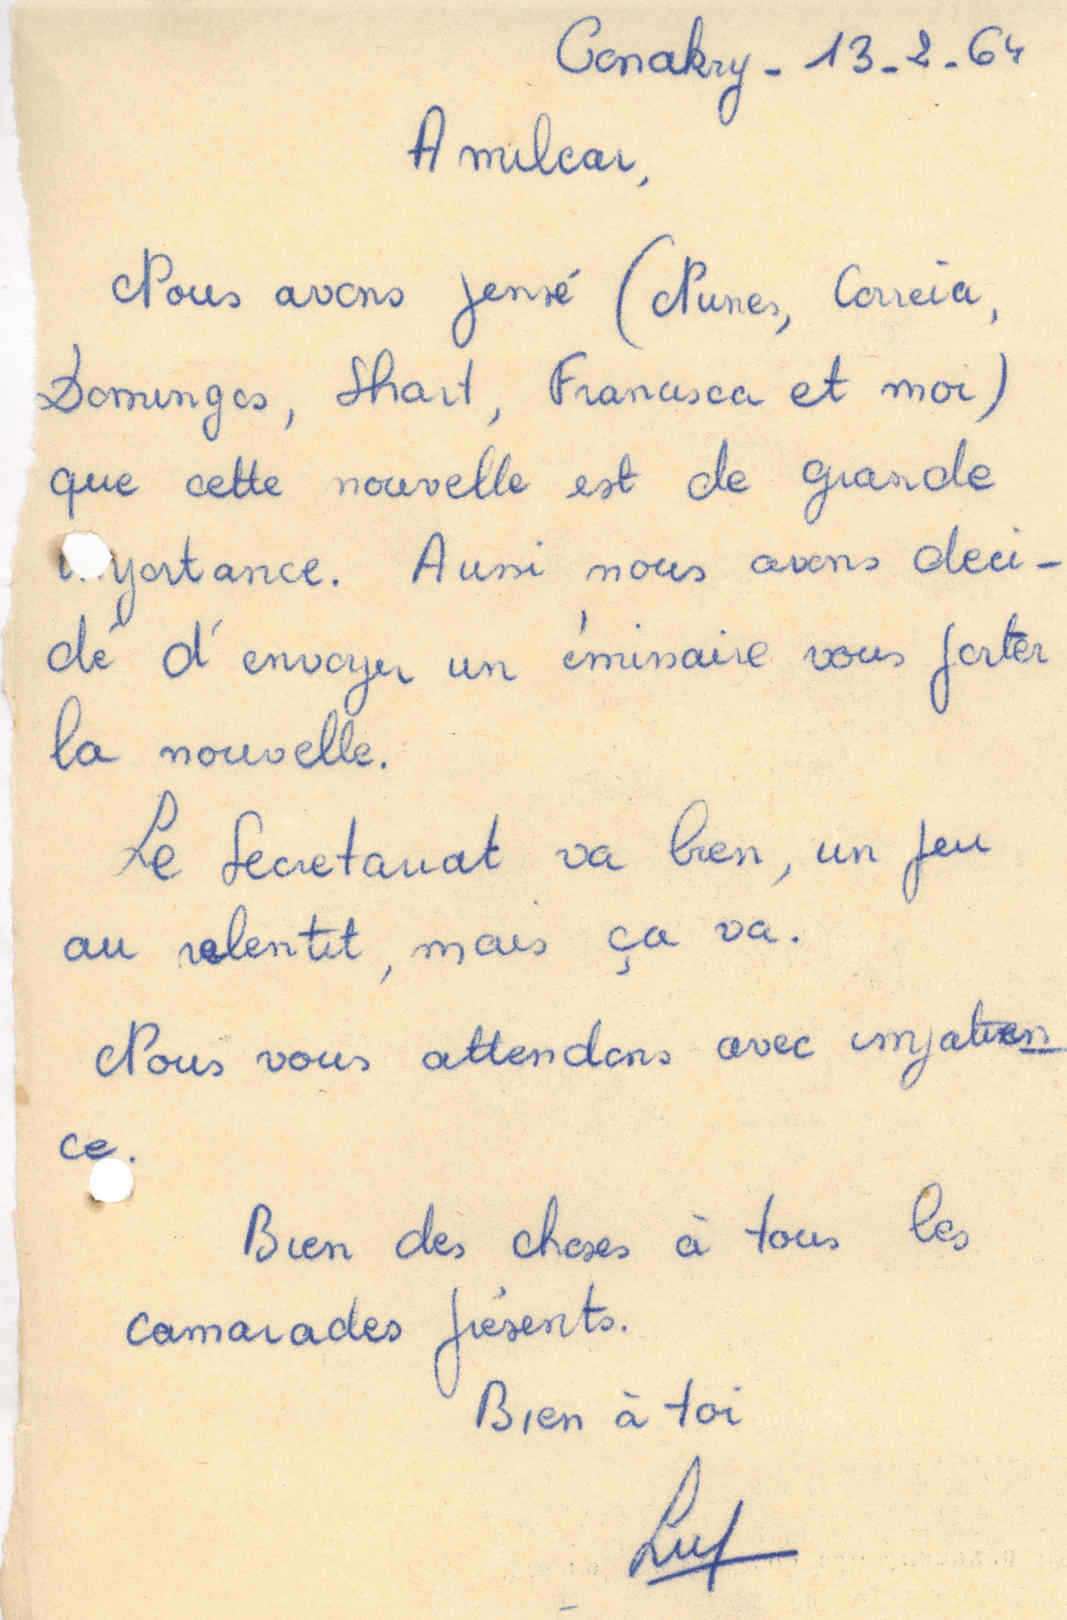 Conakry - 13-2-64
Amilcar,
Nous avons pensé (Nunes, Correia,
Domingos, Short, Francisca et moi)
que cette nouvelle est de grande
importance. Aussi nous avons deci-
dé d'envoyer un émissaire vous porter
la nouvelle.
Le Secretariat va bien, un peu
au relentit, mais ça va.
Nous vous attendons avec impatien
ce.
Bien des choses à tous les
camarades présents.
Bien à toi